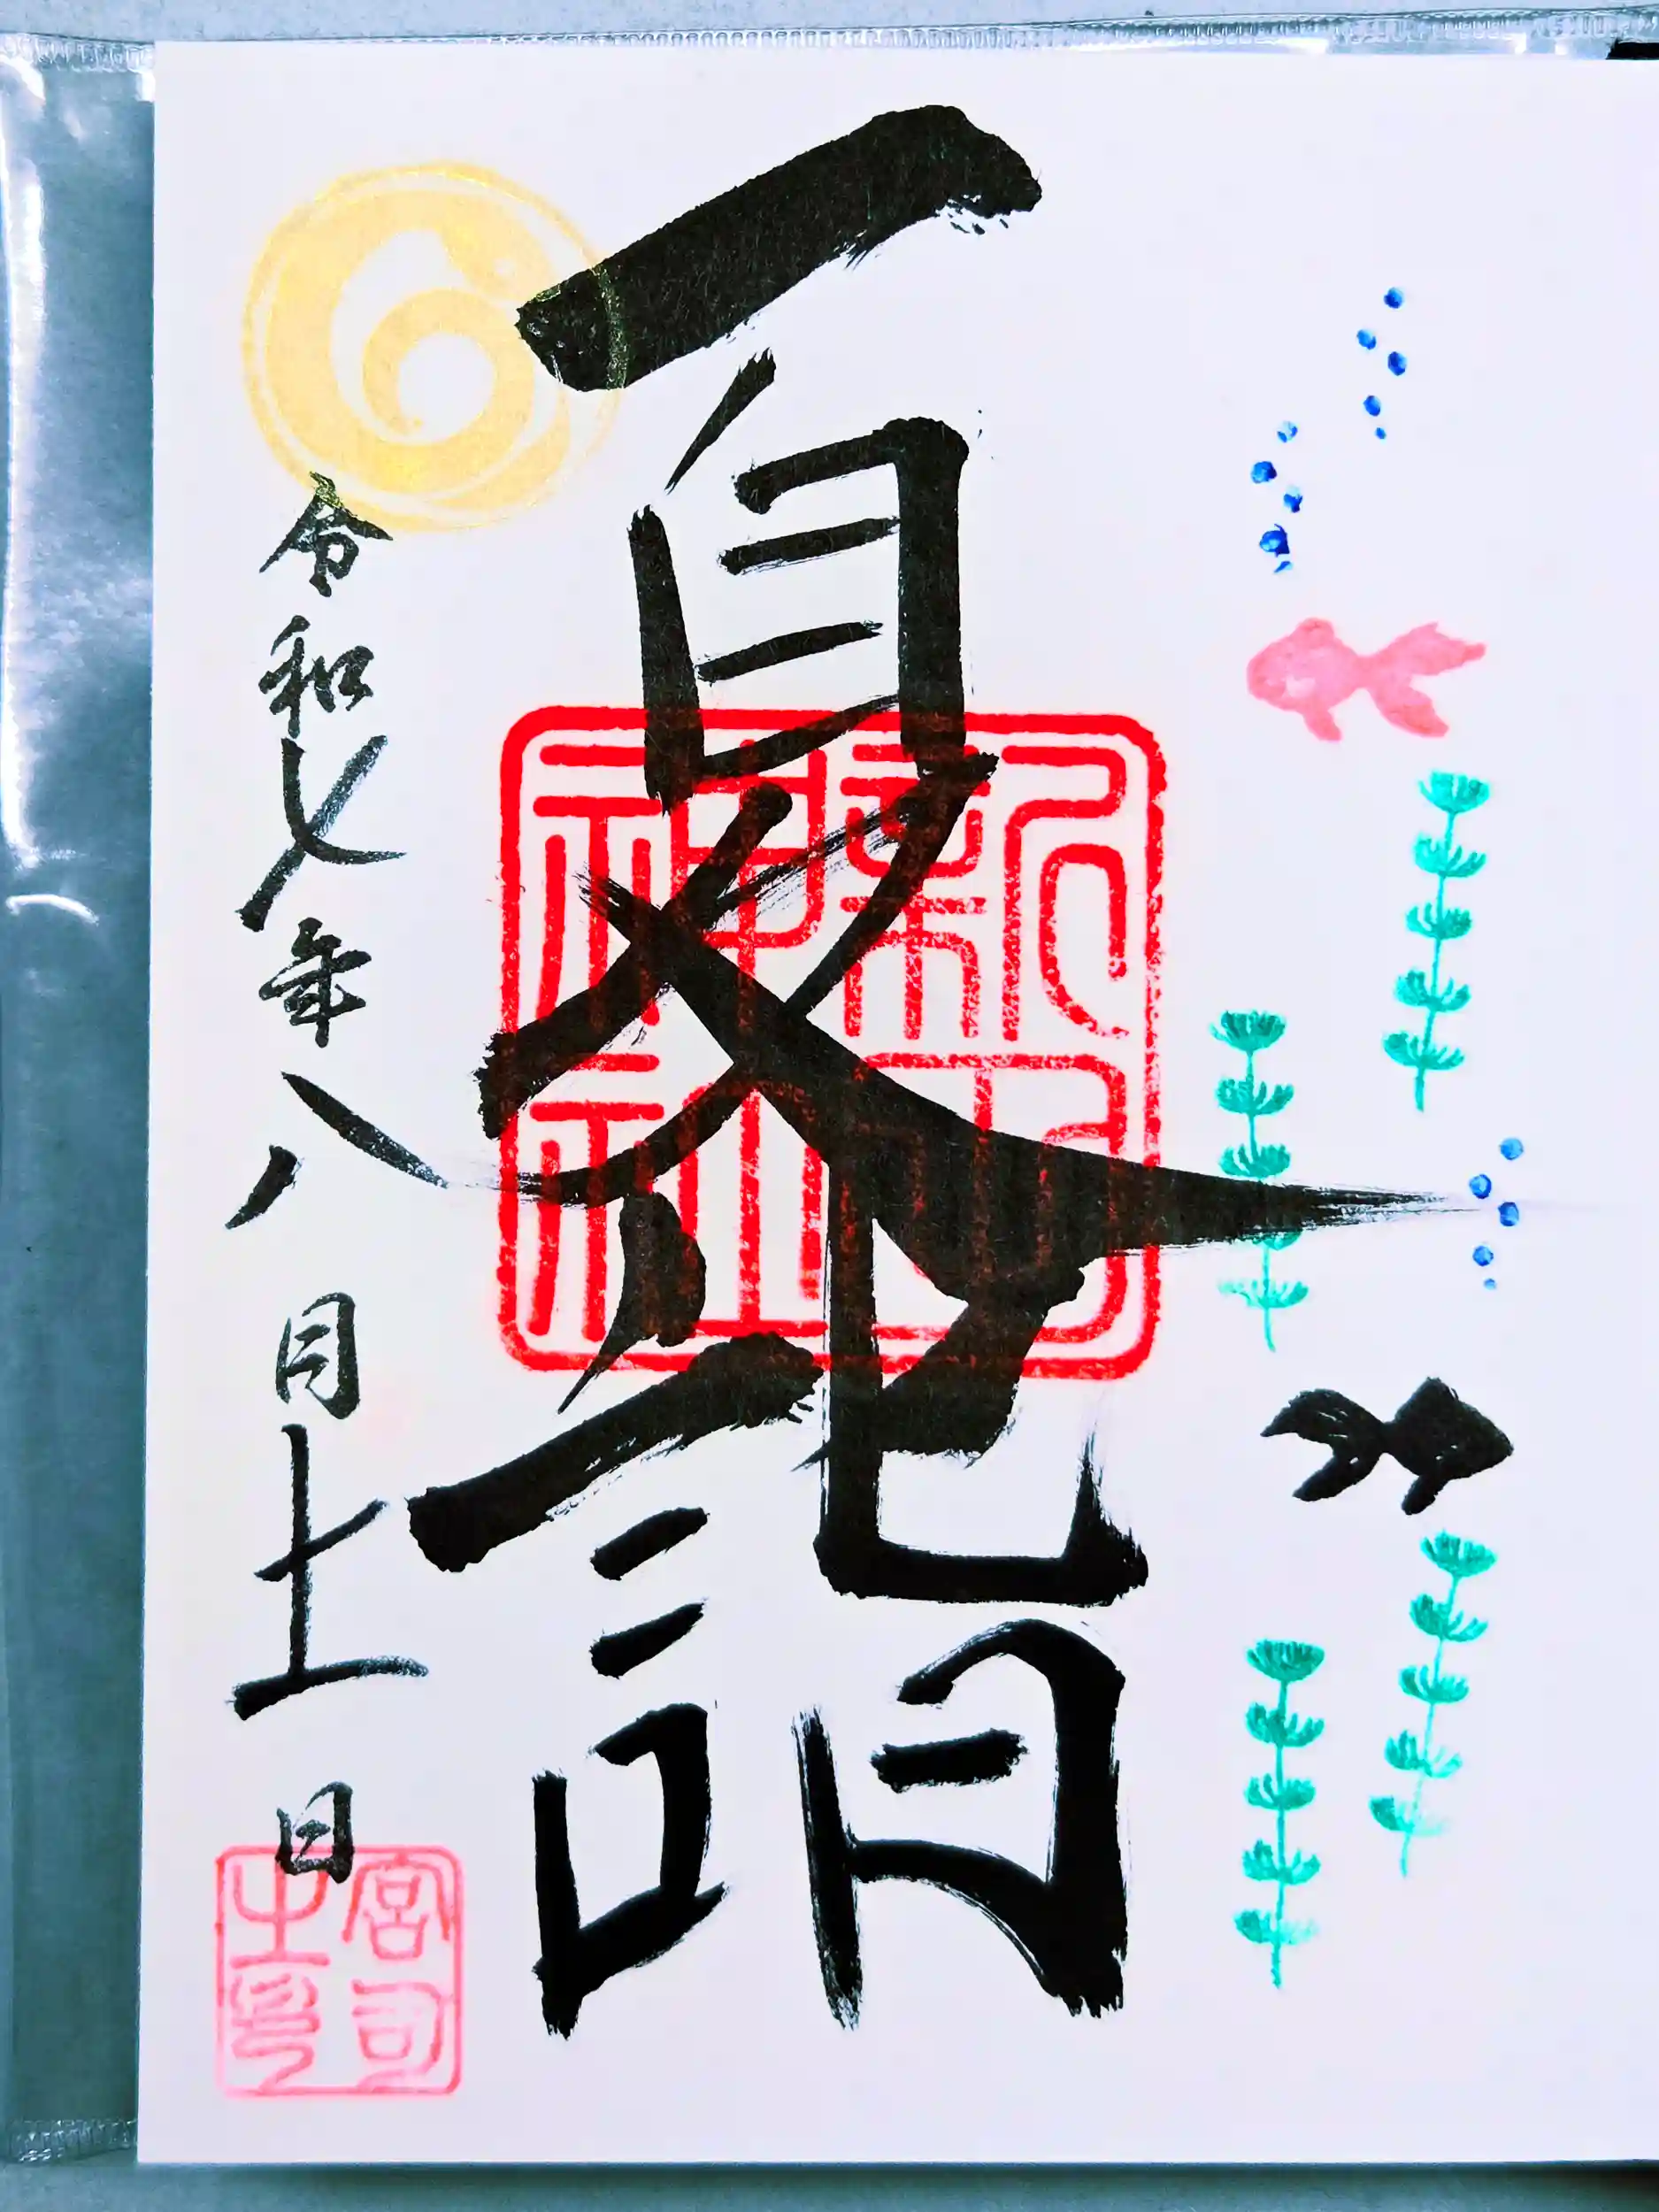 夏詣
令和七年八月十一日
神社
宮司之印